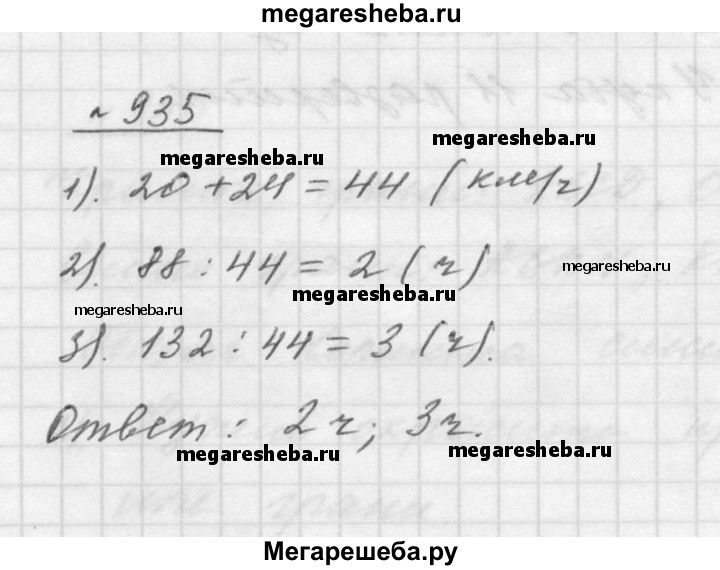 megaresheba.ru
№ 935
megaresheba.ru
megaresheba.ru
1). 20 + 24 = 44 (км/ч)
2). 88 : 44 = 2 (ч)
megaresheba.ru
megaresheba.ru
megaresheba.ru
3). 132 : 44 = 3 (ч).
Ответ: 2 ч; 3 ч.
megaresheba.ru
megaresheba.ru
Мегарешеба.ру